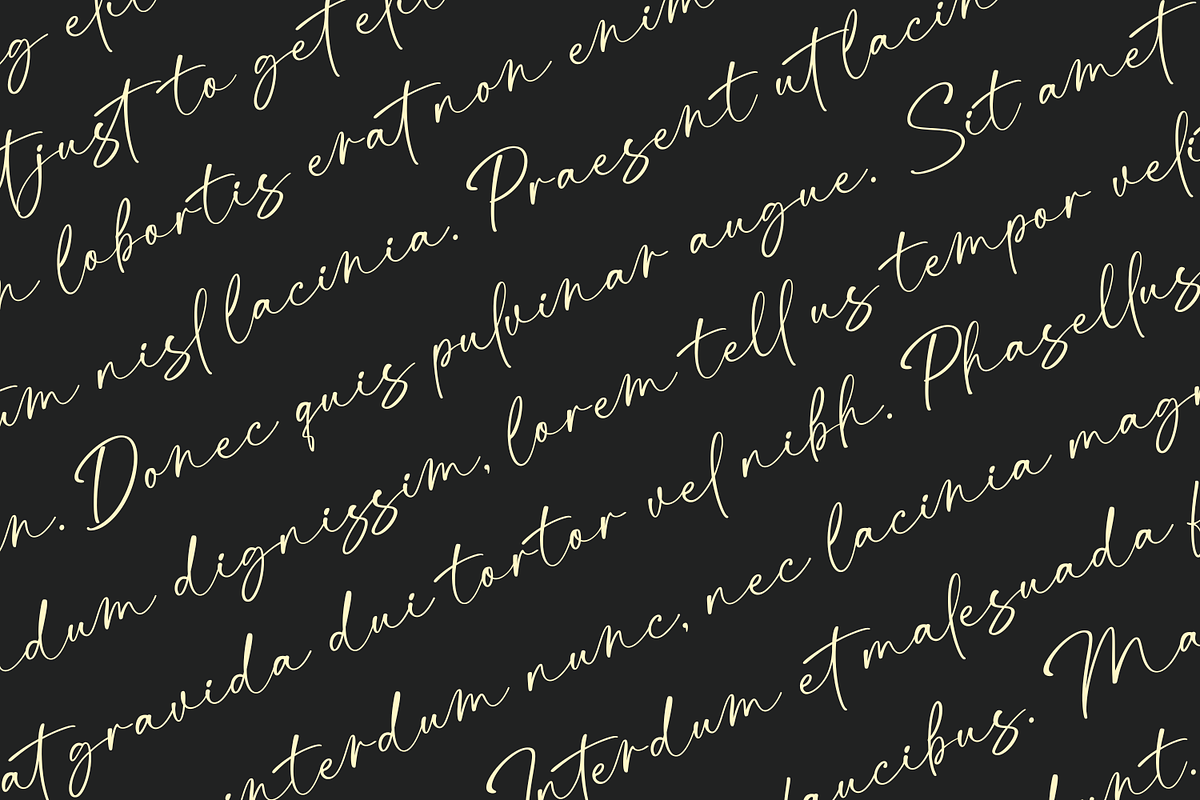 g elit
tjust to get elit
n lobortis erat non enim
um nisl lacinia. Praesent ut lacin
n. Donec quis pulvinar augue. Sit amet
dum dignissim, lorem tell us tempor veli
at gravida dui tortor vel nibh. Phasellus
interdum nunc, nec lacinia magn
Interdum et malesuada f
aucibus. Ma
unt.